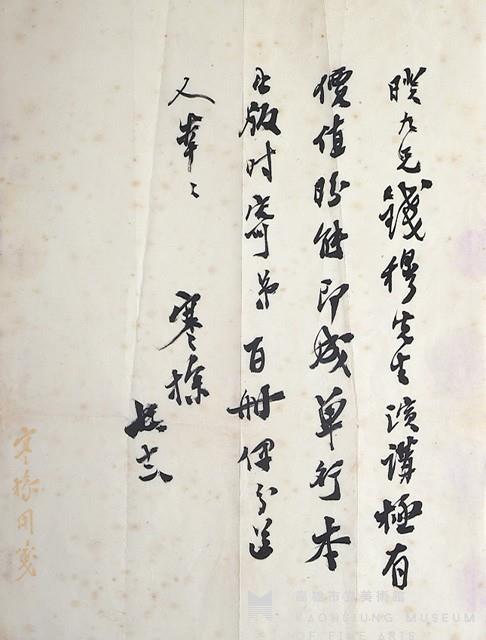 暌九兄錢穆先生演講極有
價值盼能即成單行本
出版时寄弟百册俾分送
人幸〻
寒操
寒操用箋
高雄市立美術館
KAOHSIUNG MUSEUM
OF FINE ARTS